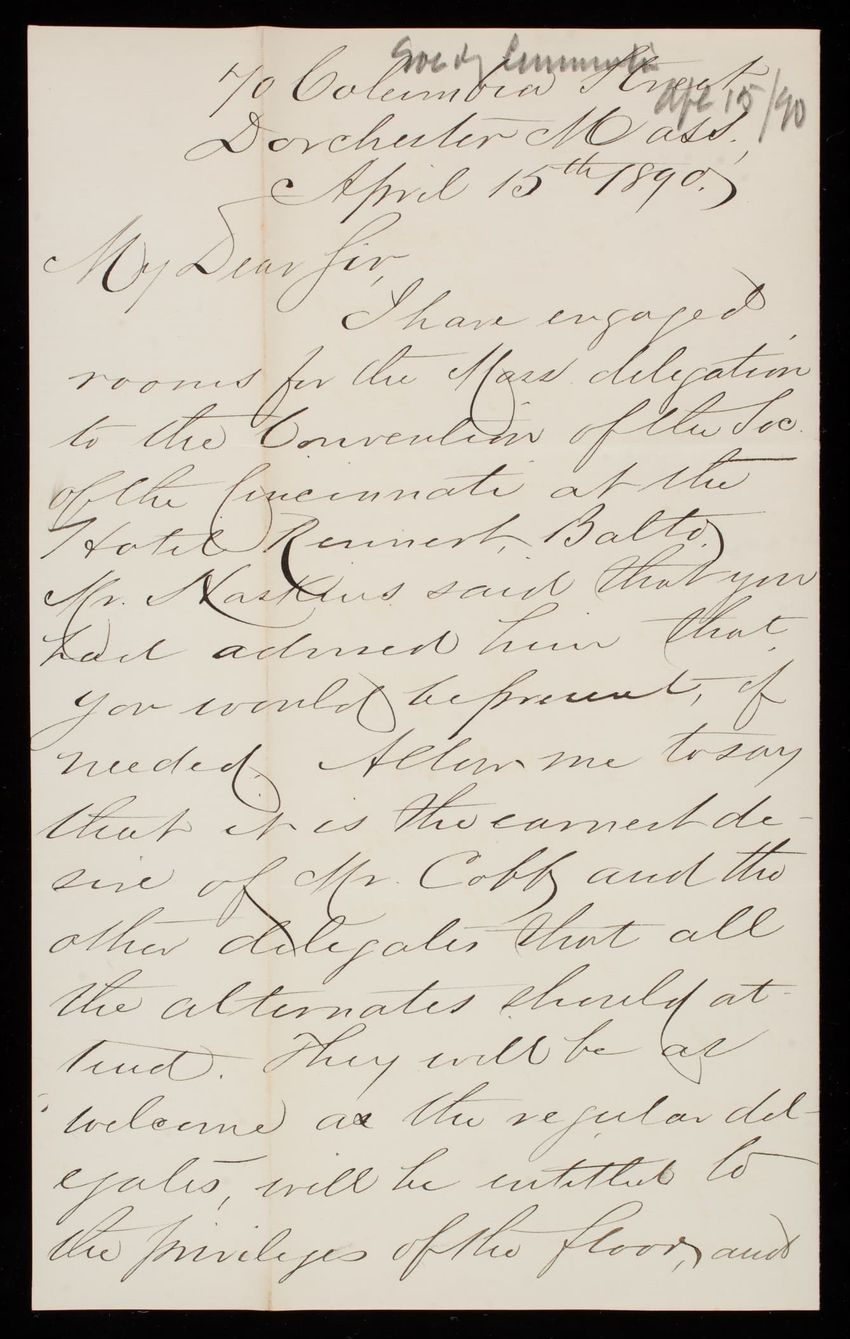 Soc of Cincinnati
Apl 15/90
70 Columbia Street
Dorchester Mass.,
April 15th 1890.
My Dear Sir,
I have engaged
rooms for the Mass. delegation
to the Convention of the Soc.
of the Cincinnati at the
Hotel Rennert, Balto.
Mr. Haskins said that you
had advised him that
you would be present, if
needed. Allow me to say
that it is the earnest de-
sire of Mr. Cobb and the
other delegates that all
the alternates should at-
tend. They will be as
welcome as the regular del-
egates, will be entitled to
the privileges of the floor, and